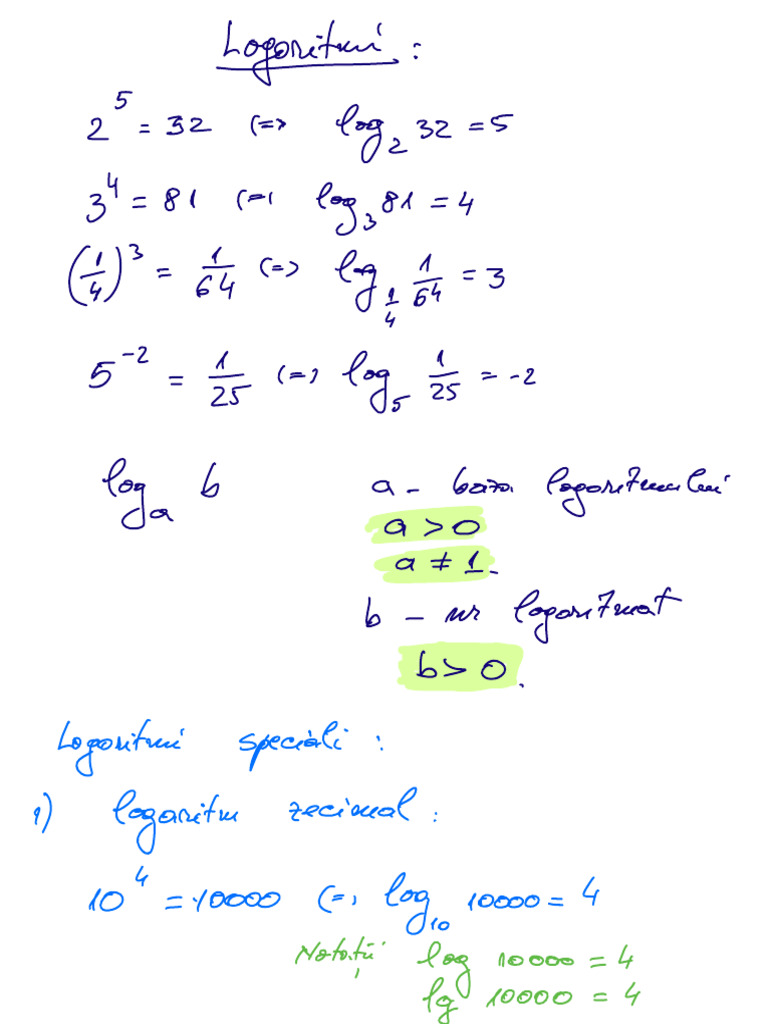 Logaritmi :
2^5 = 32 (=> log_2 32 = 5
3^4 = 81 (=> log_3 81 = 4
(1/4)^3 = 1/64 (=> log_{1/4} 1/64 = 3
5^{-2} = 1/25 (=> log_5 1/25 = -2
log_a b a - baza logaritmului
a > 0
a ≠ 1.
b - nr logaritmat
b > 0.
Logaritmi speciali :
1) logaritm zecimal :
10^4 = 10000 (=> log_10 10000 = 4
Notații log 10000 = 4
lg 10000 = 4